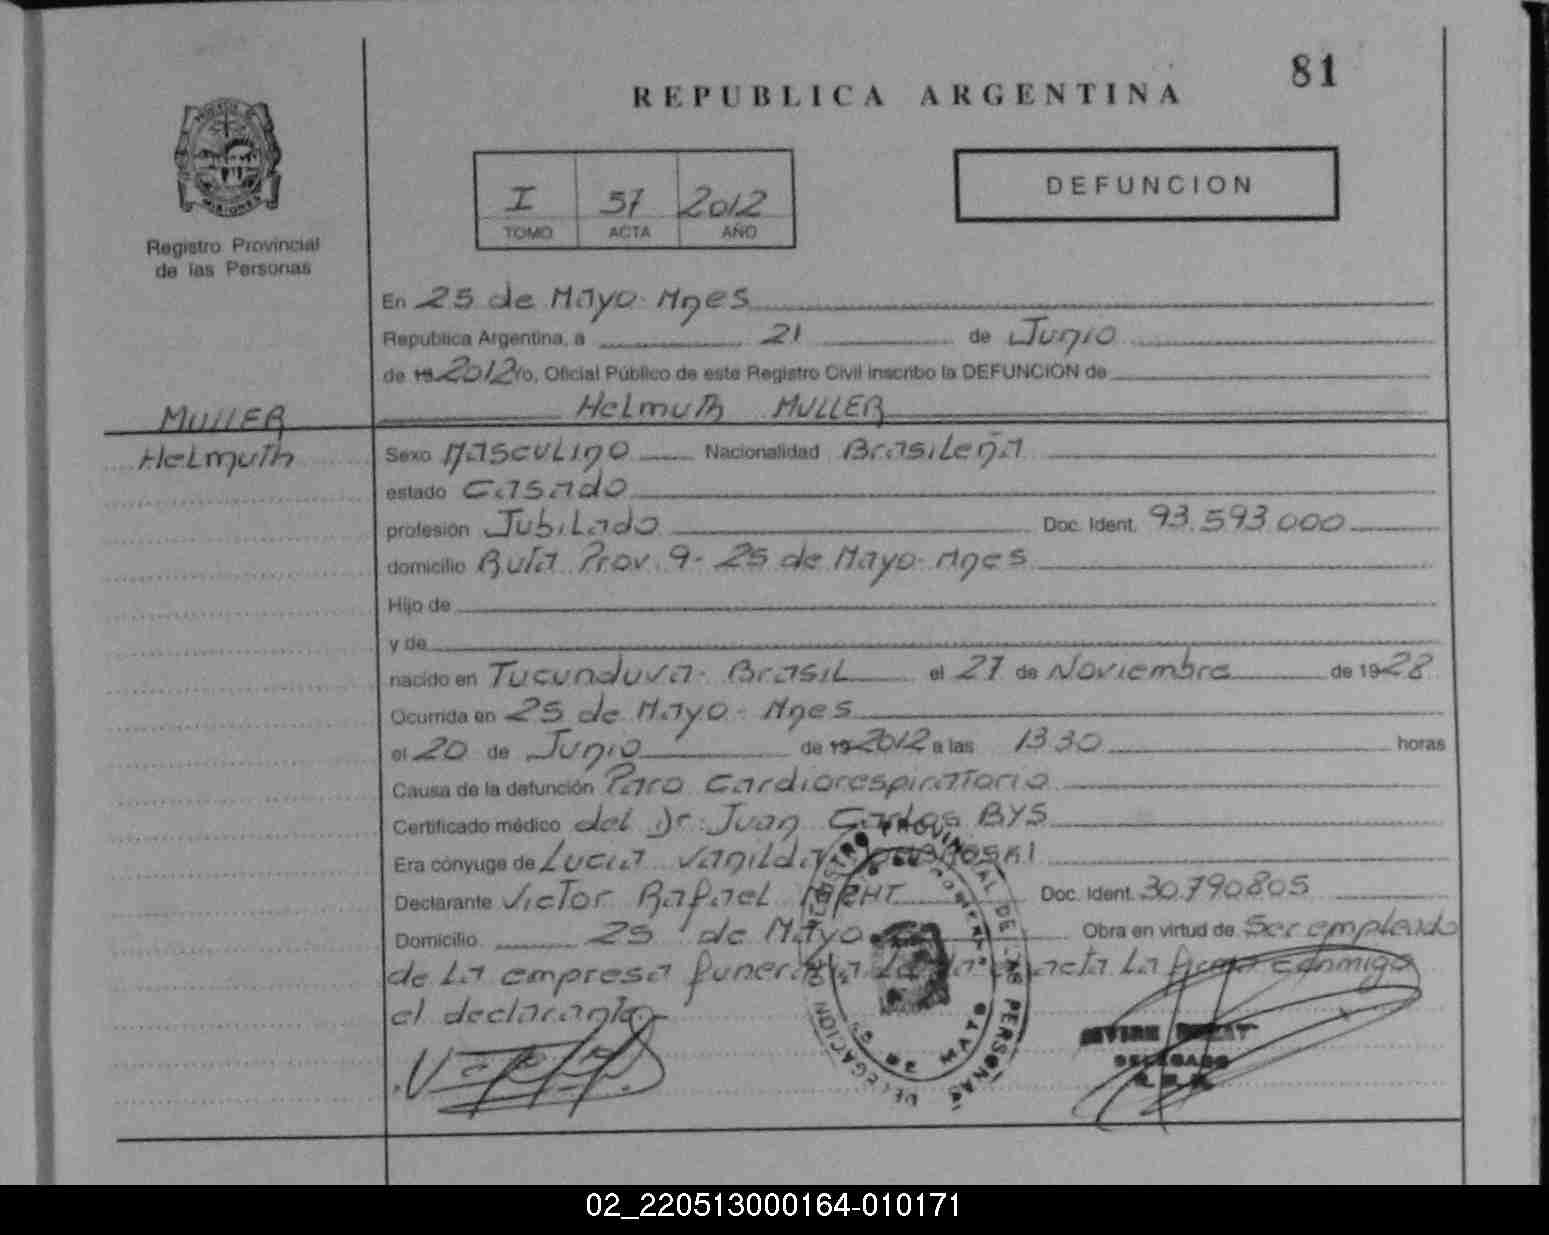 81
REPUBLICA ARGENTINA
I 57 2012
TOMO ACTA AÑO
DEFUNCION
MISIONES
Registro Provincial
de las Personas
En 25 de Mayo- Mnes
Republica Argentina, a 21 de Junio
de 19 2012 Yo, Oficial Público de este Registro Civil inscribo la DEFUNCION de
Helmuth MULLER
MULLER
Helmuth
Sexo Masculino Nacionalidad Brasileña
estado Casado
profesión Jubilado Doc. Ident. 93.593.000
domicilio Ruta Prov. 9- 25 de Mayo- Mnes
Hijo de
y de
nacido en Tucunduva- Brasil el 27 de Noviembre de 1928
Ocurrida en 25 de Mayo- Mnes
el 20 de Junio de 19 2012 a las 13 30 horas
Causa de la defunción Paro Cardiorespiratorio
Certificado médico del Dr. Juan Carlos BYS
Era cónyuge de Lucia Vanilda
Declarante Victor Rafael Doc. Ident. 30.790.805
Domicilio 25 de Mayo Obra en virtud de Ser empleado
de la empresa funeraria acta la firma conmigo
el declarante.-
REGISTRO PROVINCIAL DE LAS PERSONAS
DELEGACION
25 DE MAYO
DELEGADO
02_220513000164-010171